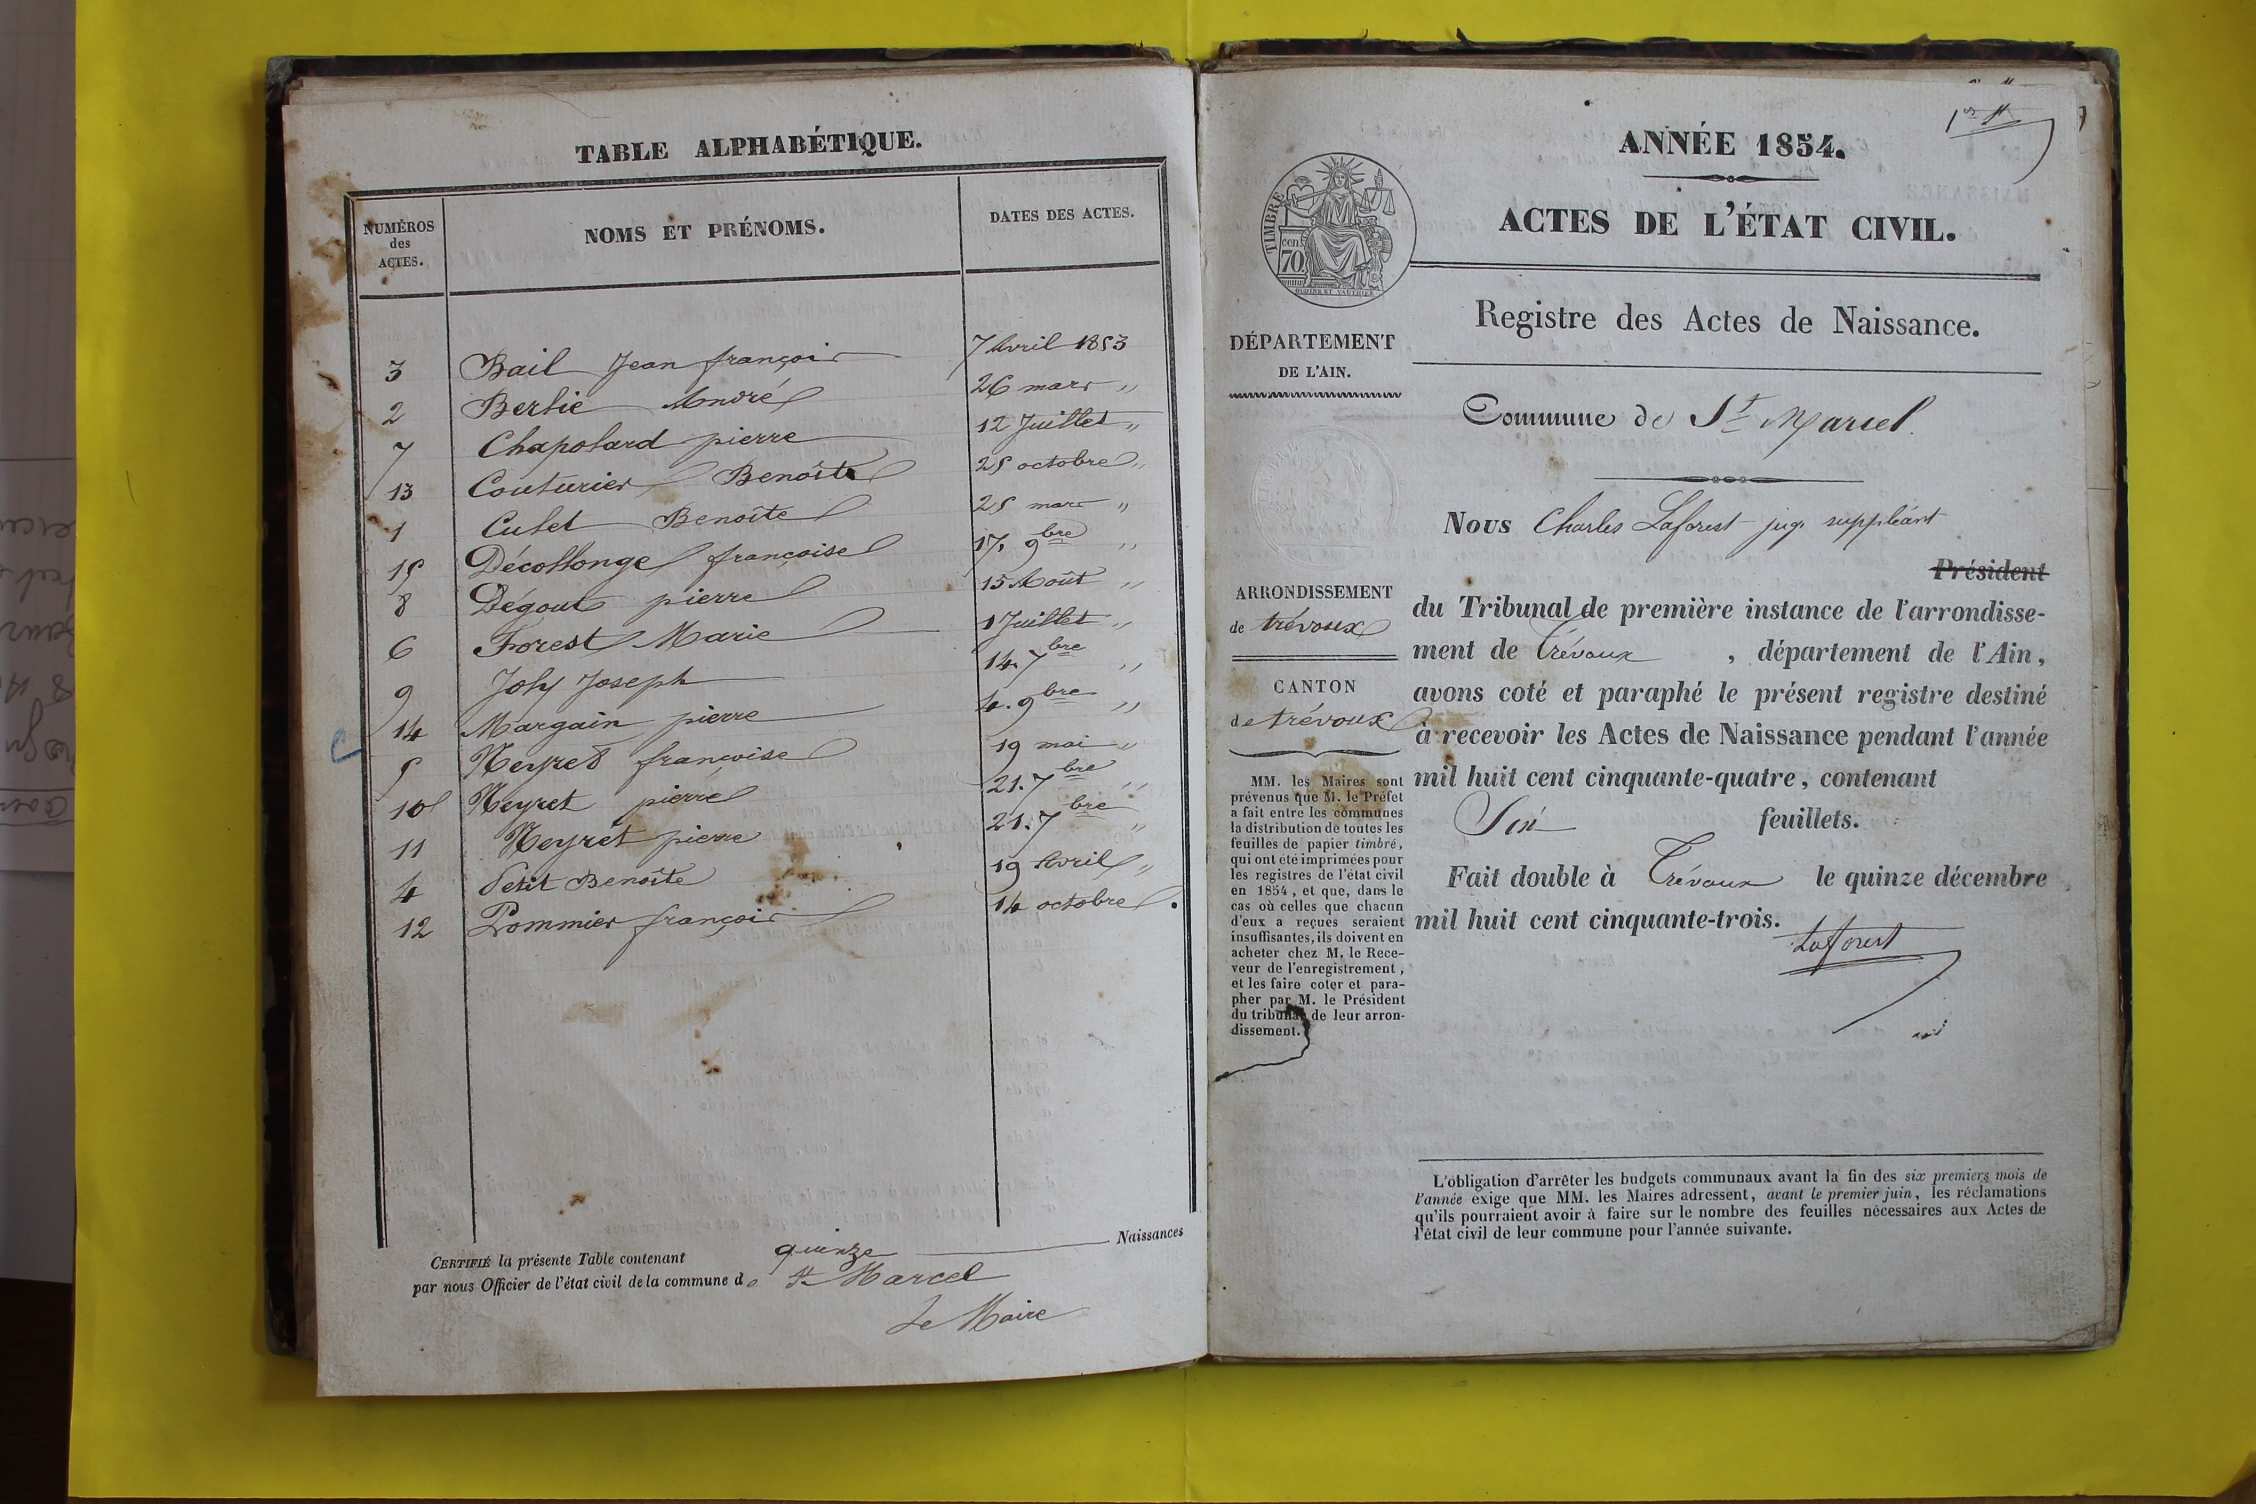 TABLE ALPHABÉTIQUE.
NUMÉROS des ACTES.
NOMS ET PRÉNOMS.
DATES DES ACTES.
3 Bail Jean françois 7 Avril 1853
2 Berlie André 26 mars "
7 Chapolard pierre 12 Juillet "
13 Couturier Benoîte 25 octobre "
1 Culet Benoîte 25 mars "
15 Décollonge françoise 17. 9bre "
8 Dégout pierre 15 Août "
6 Forest Marie 1 Juillet "
9 Joly Joseph 14. 7bre "
14 Margain pierre 4. 9bre "
5 Neyret françoise 19 mai "
10 Neyret pierre 21. 7bre "
11 Neyret pierre 21. 7bre "
4 Petit Benoîte 19 Avril "
12 Pommier françois 14 octobre.
CERTIFIÉ la présente Table contenant quinze Naissances
par nous Officier de l'état civil de la commune de St Marcel
Le Maire
1er
ANNÉE 1854.
ACTES DE L'ÉTAT CIVIL.
TIMBRE
70
Registre des Actes de Naissance.
DÉPARTEMENT
DE L'AIN.
Commune de St Marcel.
Nous Charles Laforest juge suppléant
Président
ARRONDISSEMENT
de trévoux
CANTON
de trévoux
du Tribunal de première instance de l'arrondisse-
ment de Trévoux , département de l'Ain,
avons coté et paraphé le présent registre destiné
à recevoir les Actes de Naissance pendant l'année
mil huit cent cinquante-quatre, contenant
Six feuillets.
Fait double à Trévoux le quinze décembre
mil huit cent cinquante-trois.
Laforest
MM. les Maires sont
prévenus que M. le Préfet
a fait entre les communes
la distribution de toutes les
feuilles de papier timbré,
qui ont été imprimées pour
les registres de l'état civil
en 1854, et que, dans le
cas où celles que chacun
d'eux a reçues seraient
insuffisantes, ils doivent en
acheter chez M. le Rece-
veur de l'enregistrement,
et les faire coter et para-
pher par M. le Président
du tribunal de leur arron-
dissement.
L'obligation d'arrêter les budgets communaux avant la fin des six premiers mois de
l'année exige que MM. les Maires adressent, avant le premier juin, les réclamations
qu'ils pourraient avoir à faire sur le nombre des feuilles nécessaires aux Actes de
l'état civil de leur commune pour l'année suivante.